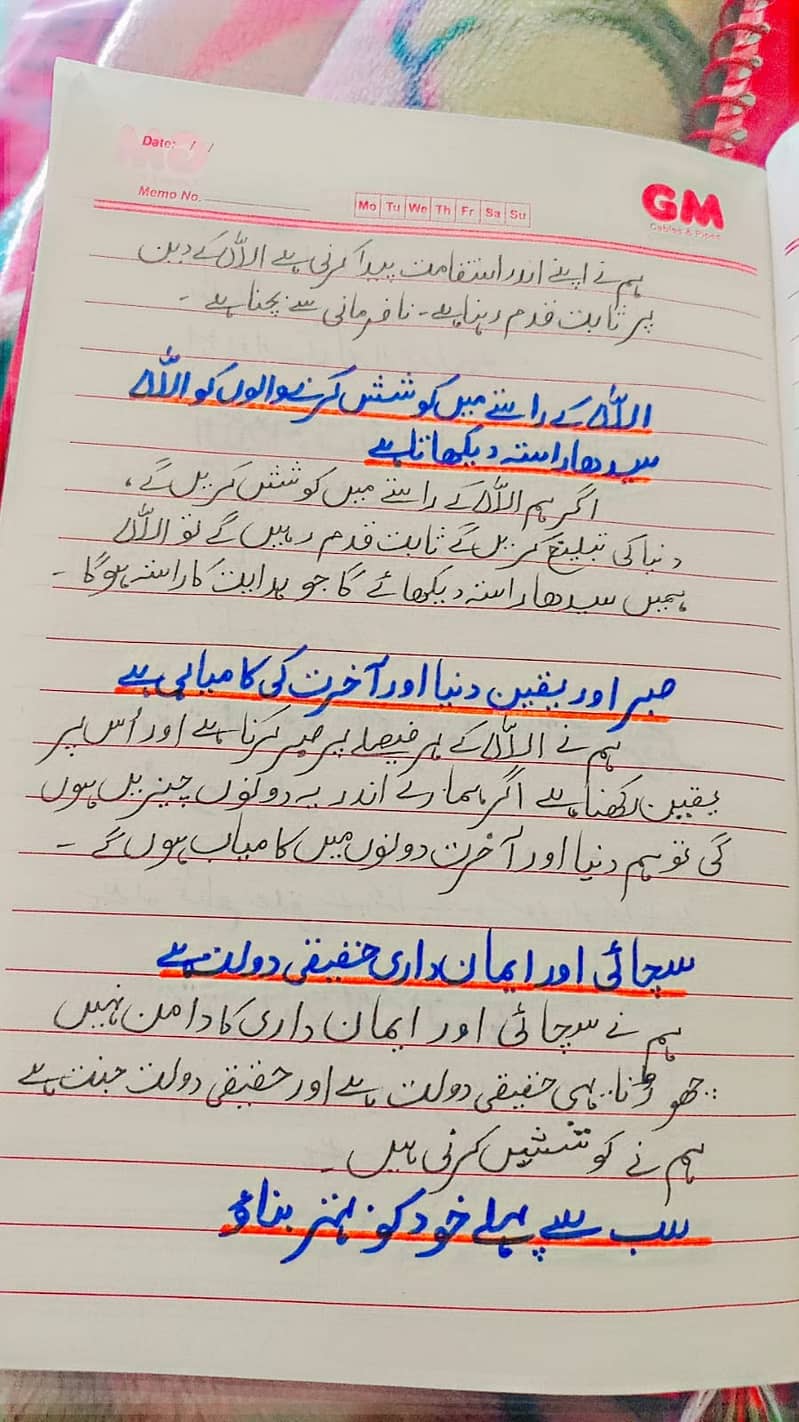 Date: / /
Memo No.
Mo Tu We Th Fr Sa Su
GM
Cables & Pipes
ہم نے اپنے اندر استقامت پیدا کرنی ہے اللہ کے دین
پر ثابت قدم رہنا ہے۔ نافرمانی سے بچنا ہے۔
اللہ کے راستے میں کوشش کرنے والوں کو اللہ
سیدھا راستہ دیکھاتا ہے
اگر ہم اللہ کے راستے میں کوشش کریں گے،
دنیا کی تبلیغ کریں گے ثابت قدم رہیں گے تو اللہ
ہمیں سیدھا راستہ دیکھائے گا جو ہدایت کا راستہ ہوگا۔
صبر اور یقین دنیا اور آخرت کی کامیابی ہے
ہم نے اللہ کے ہر فیصلے پر صبر کرنا ہے اور اُس پر
یقین رکھنا ہے اگر ہمارے اندر یہ دونوں چیزیں ہوں
گی تو ہم دنیا اور آخرت دونوں میں کامیاب ہوں گے۔
سچائی اور ایمان داری حقیقی دولت ہے
ہم نے سچائی اور ایمان داری کا دامن نہیں
چھوڑنا یہی حقیقی دولت ہے اور حقیقی دولت جنت ہے
ہم نے کوششیں کرنی ہیں۔
سب سے پہلے خود کو بہتر بناؤ